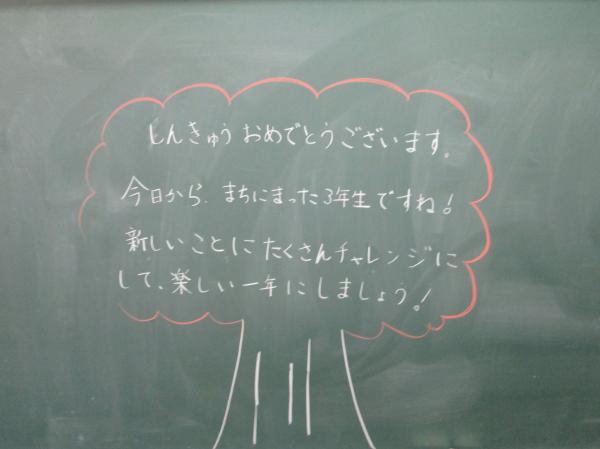 しんきゅうおめでとうございます。
今日から、まちにまった3年生ですね!
新しいことにたくさんチャレンジに
して、楽しい一年にしましょう!